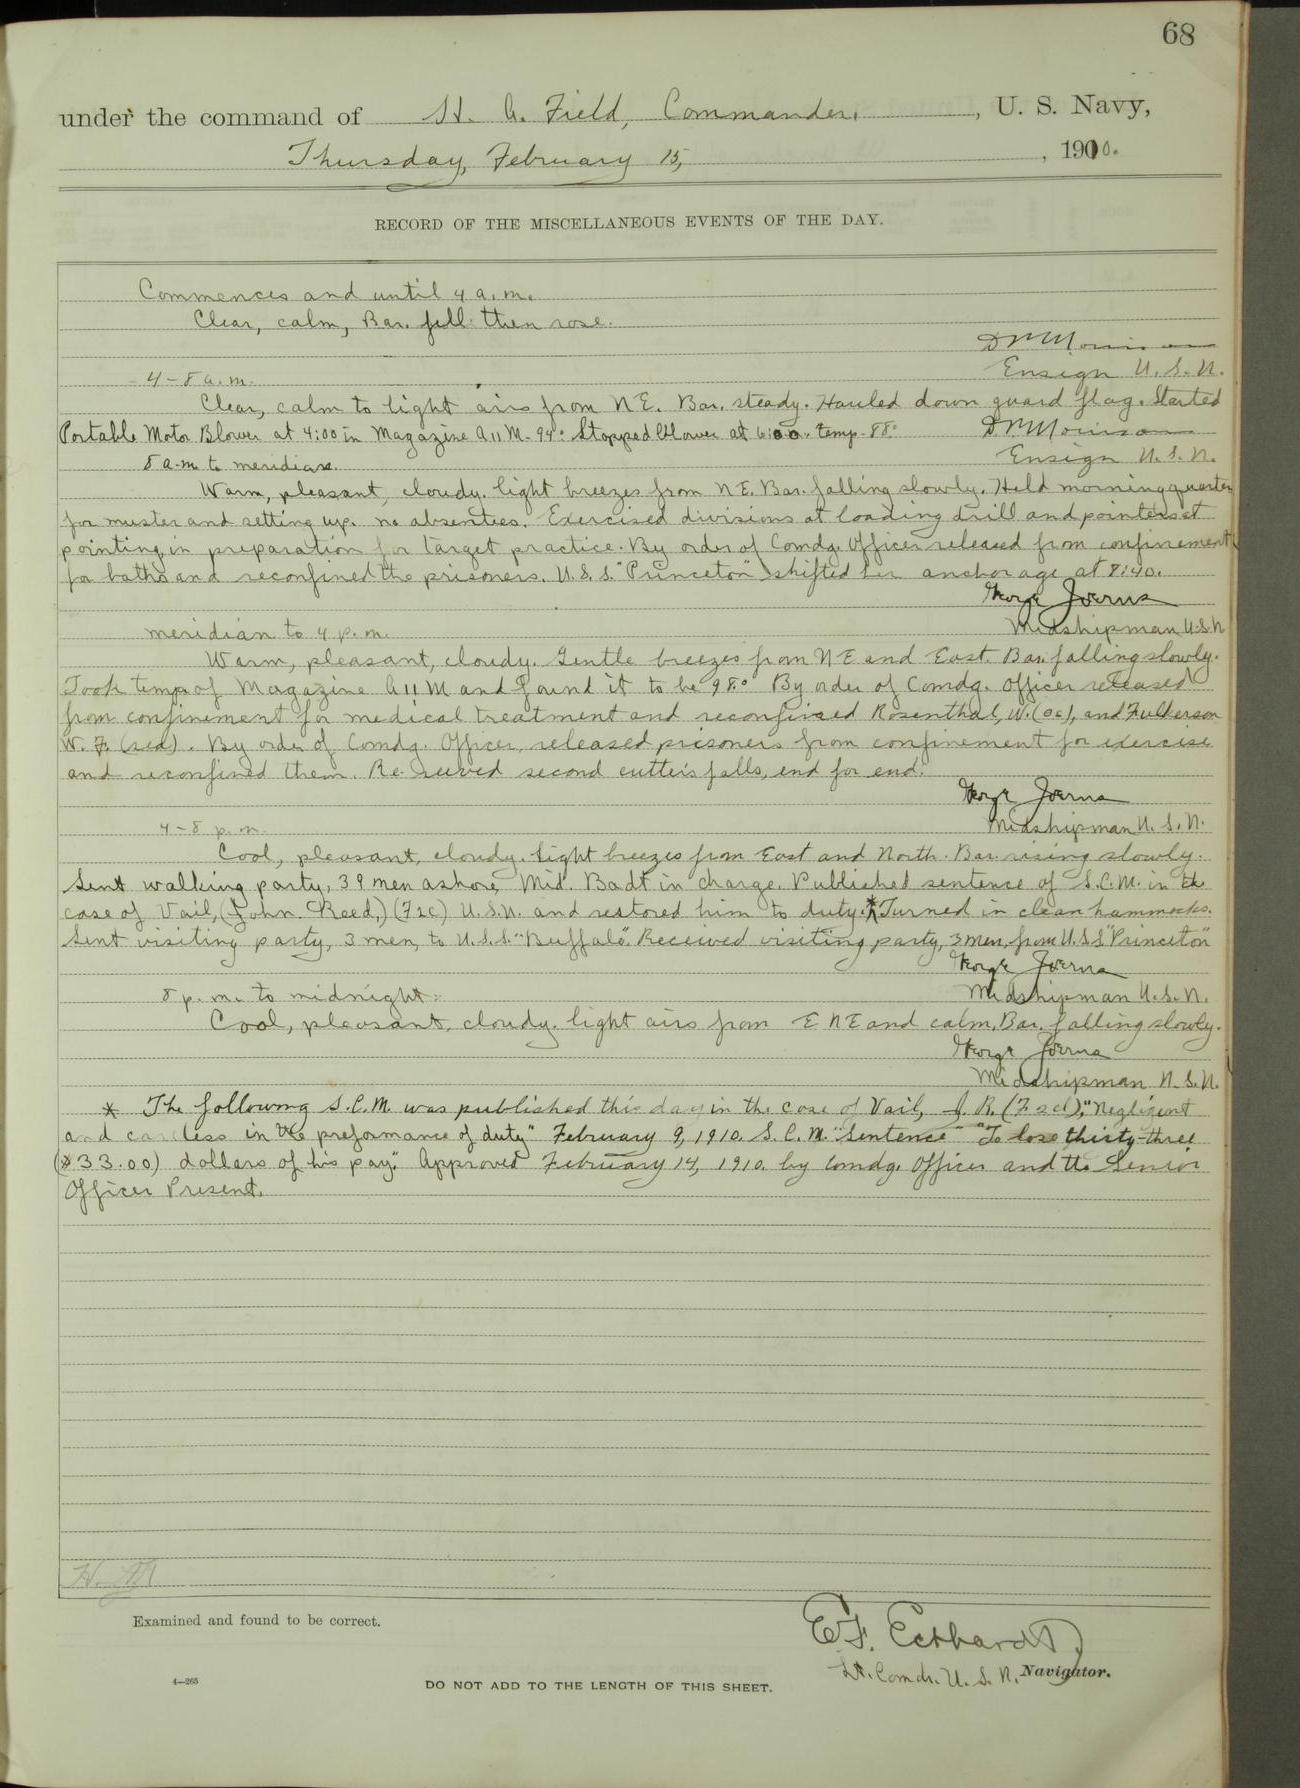 68
under the command of H. A. Field, Commander, , U. S. Navy,
Thursday, February 15, , 1910.
RECORD OF THE MISCELLANEOUS EVENTS OF THE DAY.
Commences and until 4 a.m.
Clear, calm, Bar. fell then rose.
Ensign U.S.N.
4-8 a.m.
Clear, calm to light airs from NE. Bar. steady. Hauled down guard flag. Started
Portable Motor Blower at 4:00 in Magazine A11M-94° Stopped blower at 6:00. temp-88°
Ensign U.S.N.
8 a.m. to meridian.
Warm, pleasant, cloudy. light breezes from NE. Bar. falling slowly. Held morning quarters
for muster and setting up. no absentees. Exercised divisions at loading drill and pointers at
pointing in preparation for target practice. By order of Comdg. Officer released from confinement
for baths and reconfined the prisoners. U.S.S. "Princeton" shifted her anchorage at 8:40.
George Joerns
Midshipman U.S.N
meridian to 4 p.m.
Warm, pleasant, cloudy. Gentle breezes from NE and East. Bar. falling slowly.
Took temp. of Magazine A11M and found it to be 98.° By order of Comdg. Officer released
from confinement for medical treatment and reconfined Rosenthal, W. (oc), and Fulkerson
W. F. (sea). By order of Comdg. Officer, released prisoners from confinement for exercise
and reconfined them. Re-reeved second cutter's falls, end for end.
George Joerns
Midshipman U.S.N.
4-8 p.m.
Cool, pleasant, cloudy. light breezes from East and North. Bar. rising slowly.
Sent walking party, 39 men ashore, Mid. Badt in charge. Published sentence of S.C.M. in the
case of Vail, (John Reed,) (F2c) U.S.N. and restored him to duty.* Turned in clean hammocks.
Sent visiting party, 3 men, to U.S.S. "Buffalo". Received visiting party, 3 men, from U.S.S. "Princeton"
George Joerns
Midshipman U.S.N.
8 p.m. to midnight:
Cool, pleasant, cloudy. light airs from ENE and calm. Bar. falling slowly.
George Joerns
Midshipman U.S.N.
* The following S.C.M. was published this day in the case of Vail, J. R. (F2cl), "Negligent
and careless in the preformance of duty" February 9, 1910. S.C.M. "Sentence" "To lose thirty-three
($33.00) dollars of his pay." Approved February 14, 1910. by Comdg. Officer and the Senior
Officer Present.
Examined and found to be correct.
E. F. Eckhardt,
Lt. Comdr. U.S.N. Navigator.
4—265
DO NOT ADD TO THE LENGTH OF THIS SHEET.